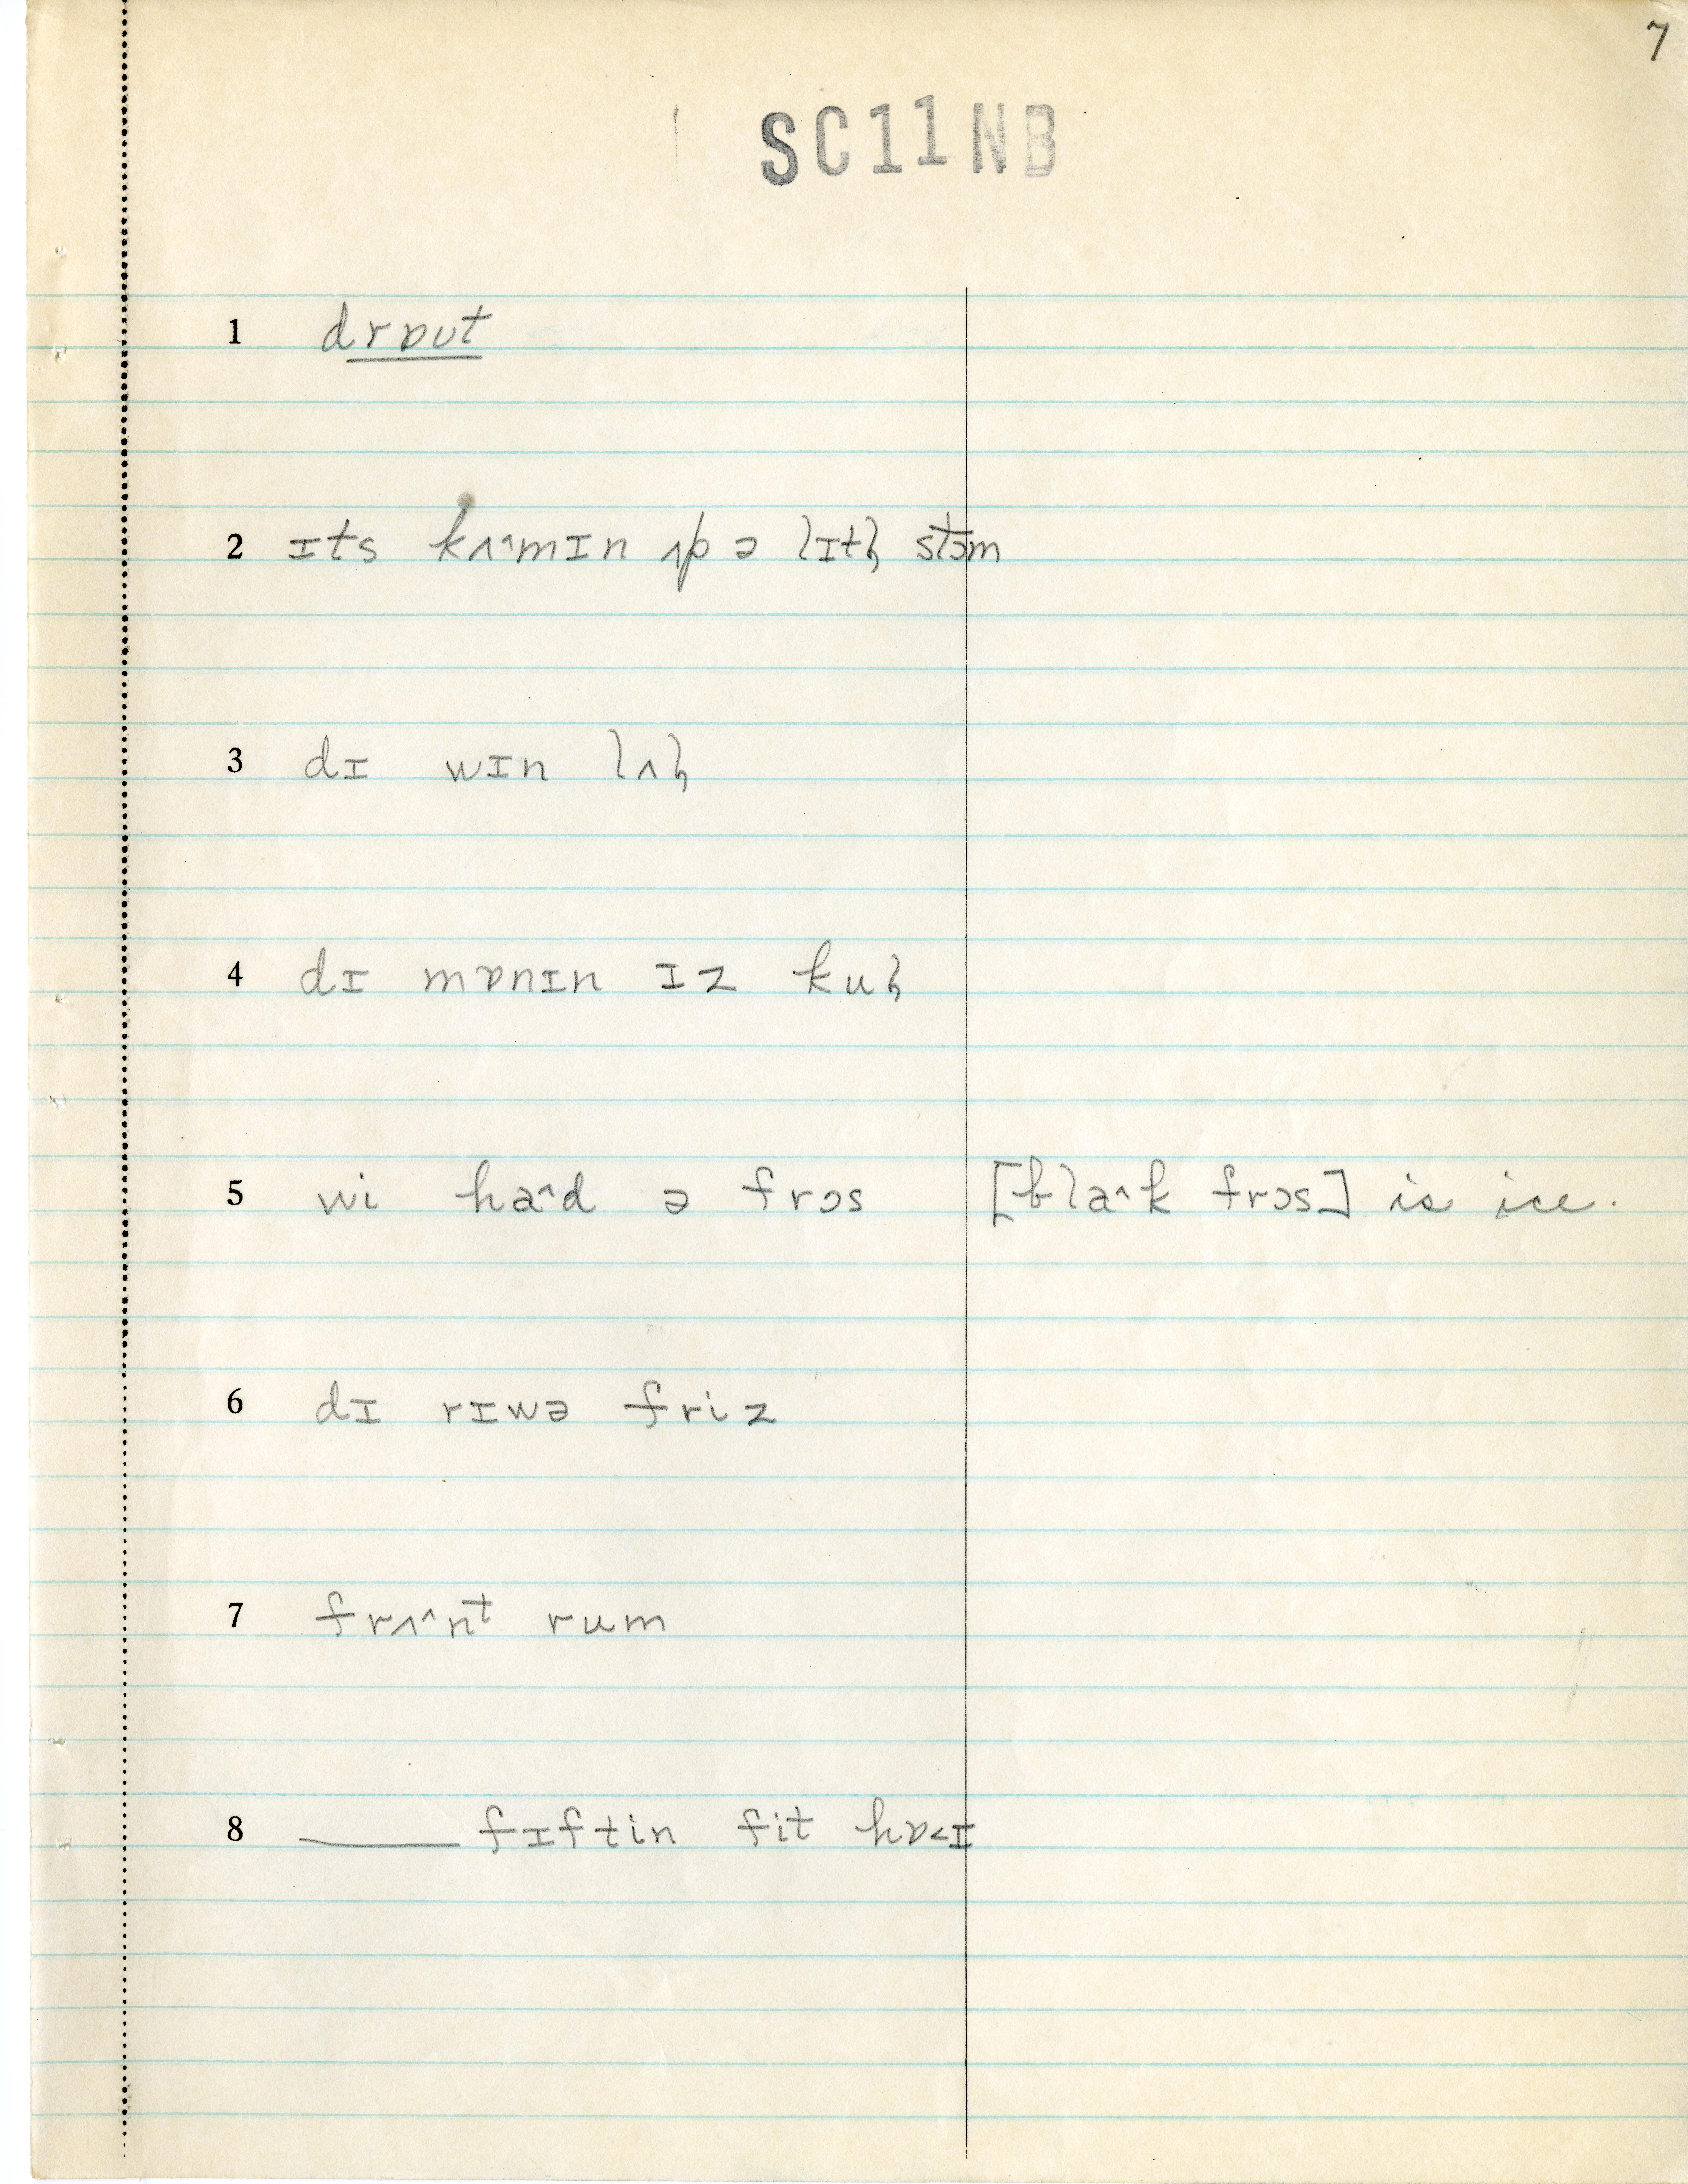 7
SC11NB
1 drɒut
2 ɪts kʌ˄mɪn ʌp ə lɪtl̥ stɔm
3 dɪ wɪn lʌl̥
4 dɪ mɒnɪn ɪz kul̥
5 wi ha˄d ə frɔs [bla˄k frɔs] is ice.
6 dɪ rɪwə friz
7 frʌ˄nᵗ rum
8 ______ fɪftin fit hɒ˂ɪ